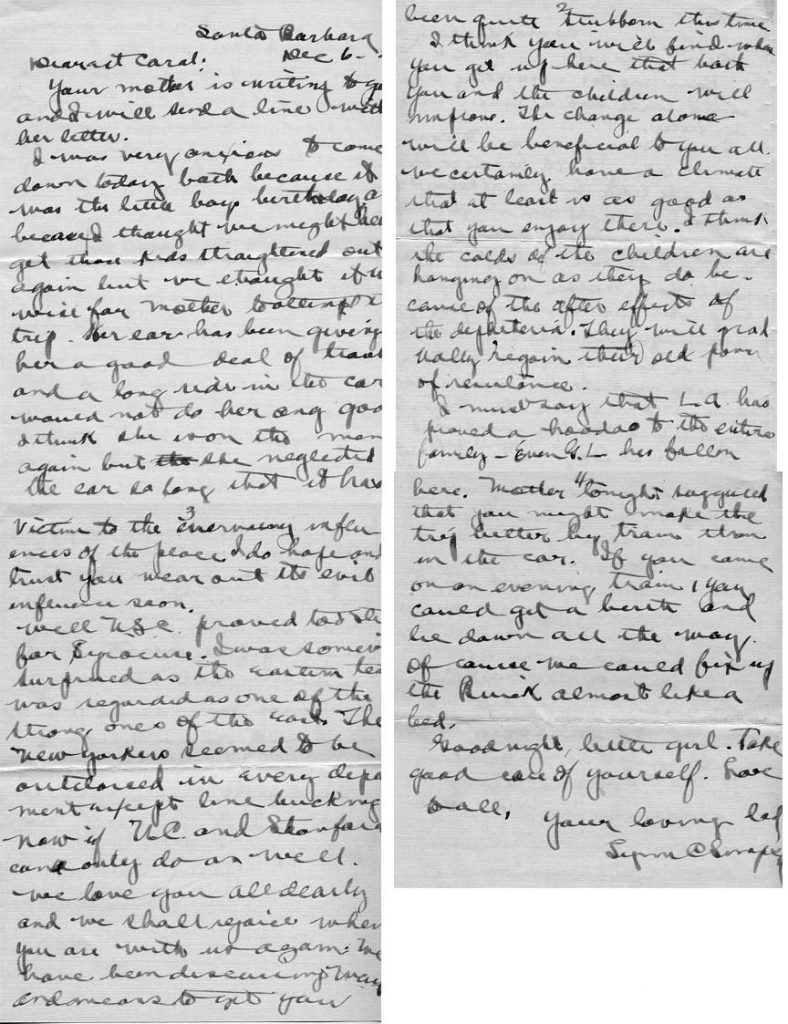 Santa Barbara
Dec 6 -
Dearest Carol:
Your mother is writing to yo
and I will send a line with
her letter.
I was very anxious to come
down today both because it
was the little boys birthday a
because I thought we might
get those kids straightened out
again but we thought it u
wise for mother to attempt
trip. Her ear has been giving
her a good deal of troub
and a long ride in the car
would not do her any goo
I think she is on the men
again but the she neglected
the ear so long that it has
2
been quite stubborn this time
I think you will find when
you get up here that both
you and the children will
improve. The change alone
will be beneficial to you all.
We certainly have a climate
that at least is as good as
that you enjoy there. I think
the colds of the children are
hanging on as they do be-
cause of the after effects of
the dipeteria. They will grad
ually regain their old power
of resistance.
I must say that L.A. has
proved a hoodoo to the entire
family - Even G.L. has fallen
3
victim to the enervating influ
ences of the place. I do hope and
trust you wear out its evil
influence soon.
Well U.S.C. proved too
for Syracuse. I was somew
surprised as the Eastern tea
was regarded as one of the
strong ones of the East. The
New Yorkers seemed to be
outclassed in every depa
ment except line bucking
Now if U.C. and Stanford
can only do as well.
We love you all dearly
and we shall rejoice when
you are with us again. We
have been discussing ways
and means to get you
4
here. Mother tonight suggested
that you might make the
trip better by train than
in the car. If you came
on an evening train, you
could get a berth and
lie down all the way.
Of course we could fix up
the Buick almost like a
bed.
Goodnight, little girl. Take
good care of yourself. Love
to all,
Your loving dad